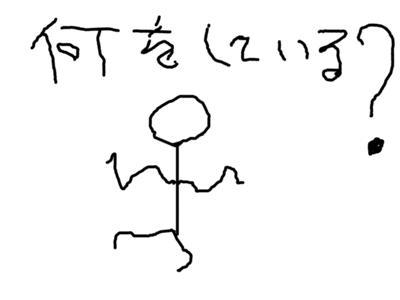 何をしている?